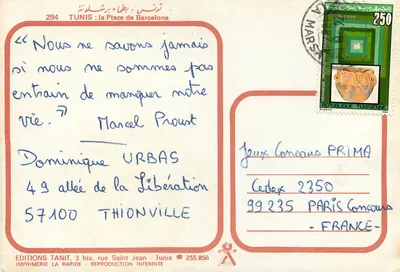 تونس - بطحاء برشلونة
294 TUNIS : la Place de Barcelona
" Nous ne savons jamais
si nous ne sommes pas
entrain de manquer notre
vie. "
Marcel Proust
Dominique URBAS
49 allée de la Libération
57100 THIONVILLE
EDITIONS TANIT, 3 bis, rue Saint Jean - Tunis ☎ 255.856
IMPRIMERIE LA RAPIDE - REPRODUCTION INTERDITE
LA MARSA
250
REPUBLIQUE TUNISIENNE
Jeux Concours PRIMA
Cedex 2350
99235 PARIS Concours
- FRANCE -